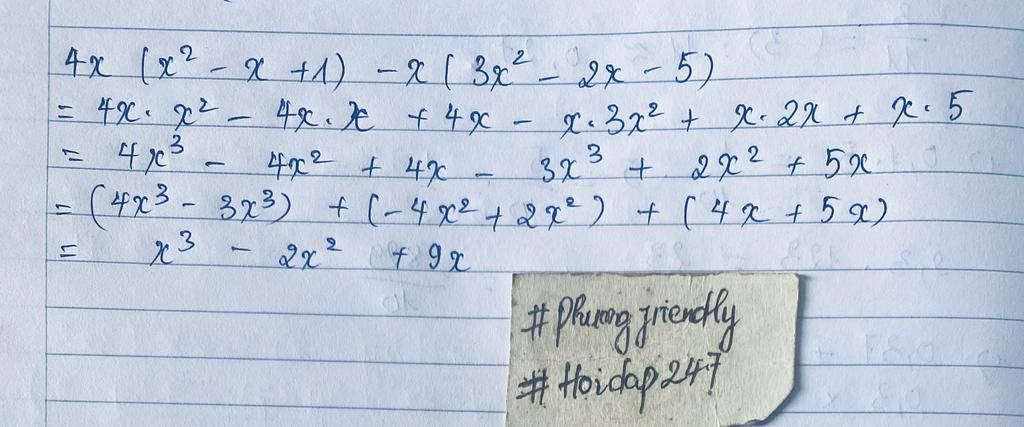 4x (x² - x + 1) - x (3x² - 2x - 5)
= 4x. x² - 4x. x + 4x - x. 3x² + x. 2x + x. 5
= 4x³ - 4x² + 4x - 3x³ + 2x² + 5x
= (4x³ - 3x³) + (-4x² + 2x²) + (4x + 5x)
= x³ - 2x² + 9x
# Phuong friendly
# Hoidap247